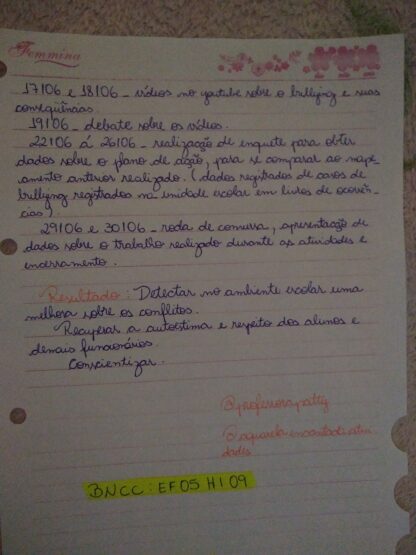 Femmina
17/06 e 18/06 - vídeos no youtube sobre o bullying e suas
consequências.
19/06 - debate sobre os vídeos.
22/06 á 26/06 - realização de enquete para obter
dados sobre o plano de ação, para se comparar ao mape-
amento anterior realizado. (dados registrados de casos de
bullying registrados na unidade escolar em livros de ocorrên-
cias).
29/06 e 30/06 - roda de conversa, apresentação de
dados sobre o trabalho realizado durante as atividades e
encerramento.
Resultado: Detectar no ambiente escolar uma
melhora sobre os conflitos.
Recuperar a autoestima e respeito dos alunos e
demais funcionários.
Conscientizar.
@professora
@aquarela encantada ativi
dades
BNCC: EF05HI09